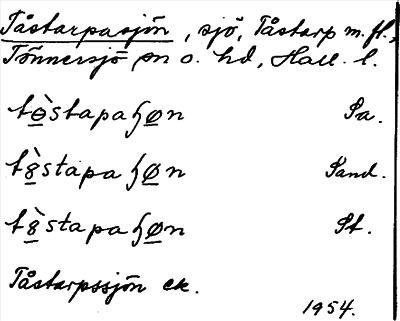 Tåstarpasjön, sjö, Tåstarp m. fl.,
Tönnersjö sn o. hd, Hall. l.
tɵ̀stapaɧøn Sa.
t8̀stapaɧøn Sand.
t8̀stapaɧøn St.
Tåstarpssjön ek.
1954.